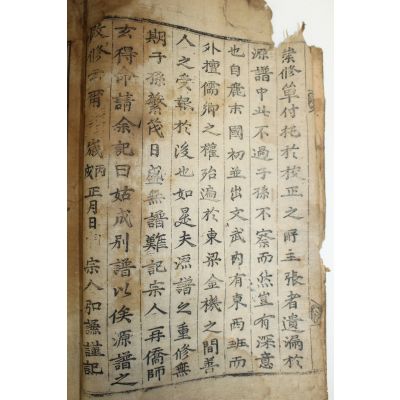 崇修草付托於按正之所主張者遺漏於
源譜中此不過子孫不察而然豈有深意
也自麗末國初並出文武內有東西班而
外擅儒卿之權殆遍於東梁金機之間善
人之受報於後也如是夫源譜之重修無
期子孫繁茂日盛無譜難記宗人再僑師
玄得仰請余記曰姑成別譜以俟源譜之
改修云爾 歲丙戌正月日 宗人 謹記